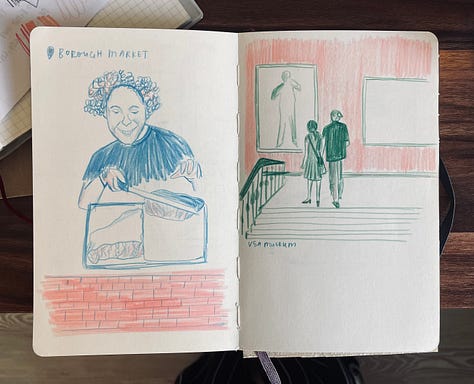 BOROUGH MARKET
V&A MUSEUM